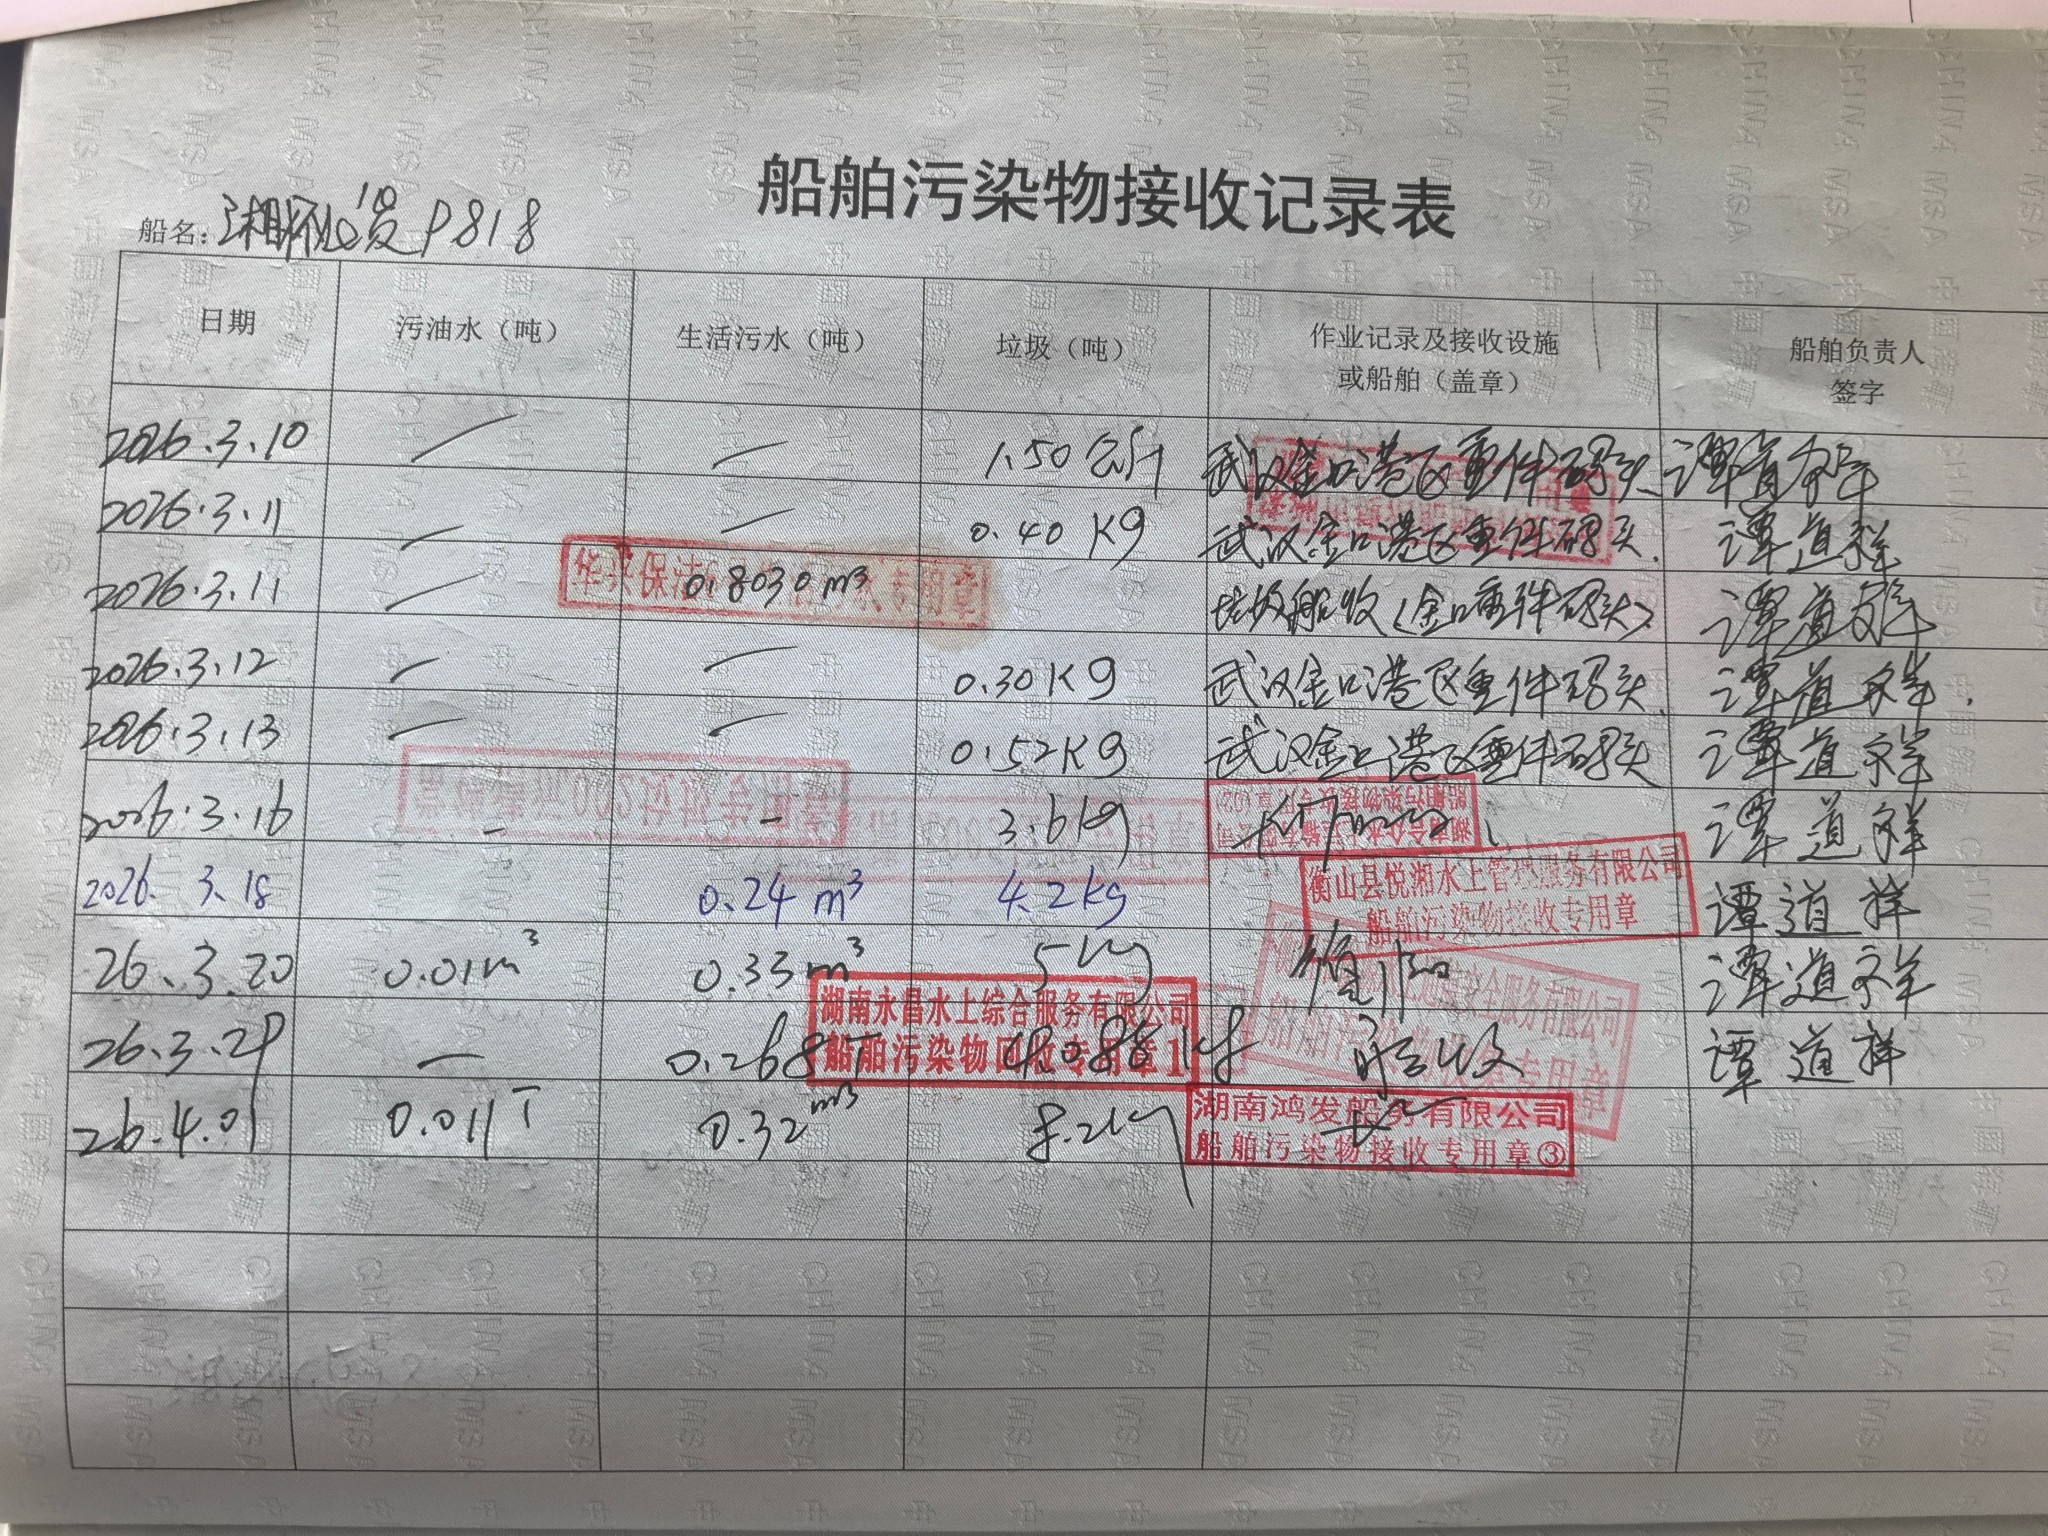 船舶污染物接收记录表
船名: P818
日期 污油水（吨） 生活污水（吨） 垃圾（吨） 作业记录及接收设施或船舶（盖章） 船舶负责人签字
2026.3.10 / — 1.50公斤 武汉金口港区重件码头 谭道祥
2026.3.11 — — 0.40 KG 武汉金口港区重件码头. 谭道祥
2026.3.11 — 0.8030 m³ 垃圾船收（金口重件码头） 谭道祥
华 保洁 专用章
2026.3.12 — — 0.30KG 武汉金口港区重件码头. 谭道祥
2026.3.13 — — 0.52KG 武汉金口港区重件码头 谭道祥
2026.3.16 - - 3.6kg 谭道祥
2026. 3.18 0.24 m³ 4.2kg 谭道祥
衡山县悦湘水上管理服务有限公司
船舶污染物接收专用章
26.3.20 0.01m³ 0.33m³ 5kg 谭道祥
船舶污染物收集专用章
26.3.29 — 0.268T 船收 谭道祥
湖南永昌水上综合服务有限公司
船舶污染物回收专用章1
26.4.01 0.011T 0.32m³ 8.2kg
湖南鸿发船务有限公司
船舶污染物接收专用章③